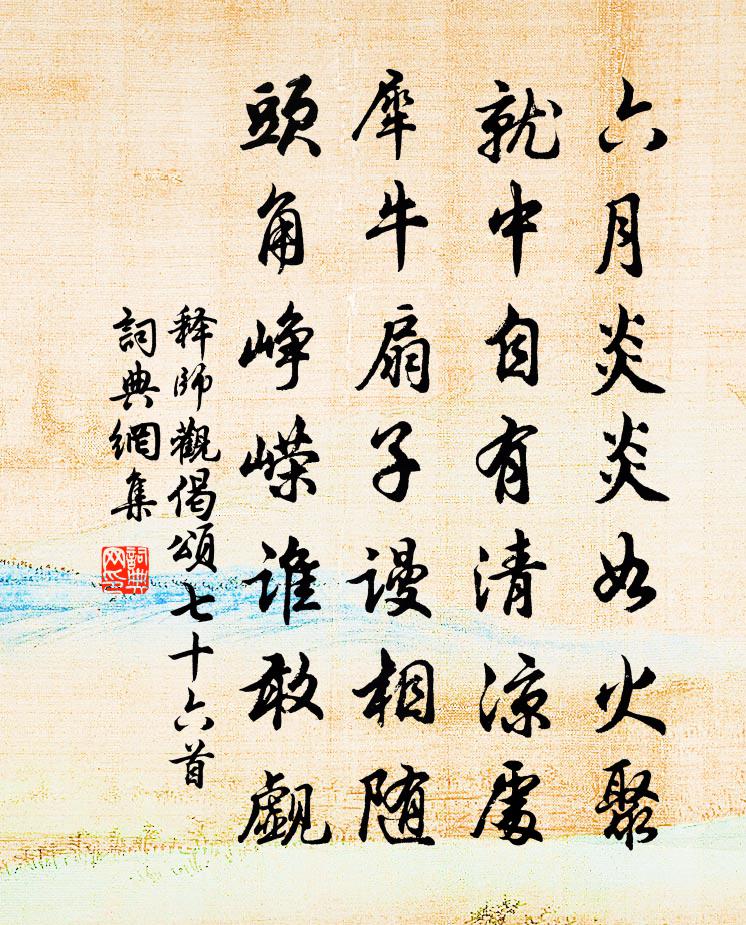 六月炎炎如火聚
就中自有清凉處
犀牛扇子謾相随
頭角崢嶸谁敢覷
释師觀偈頌七十六首
詞典網集